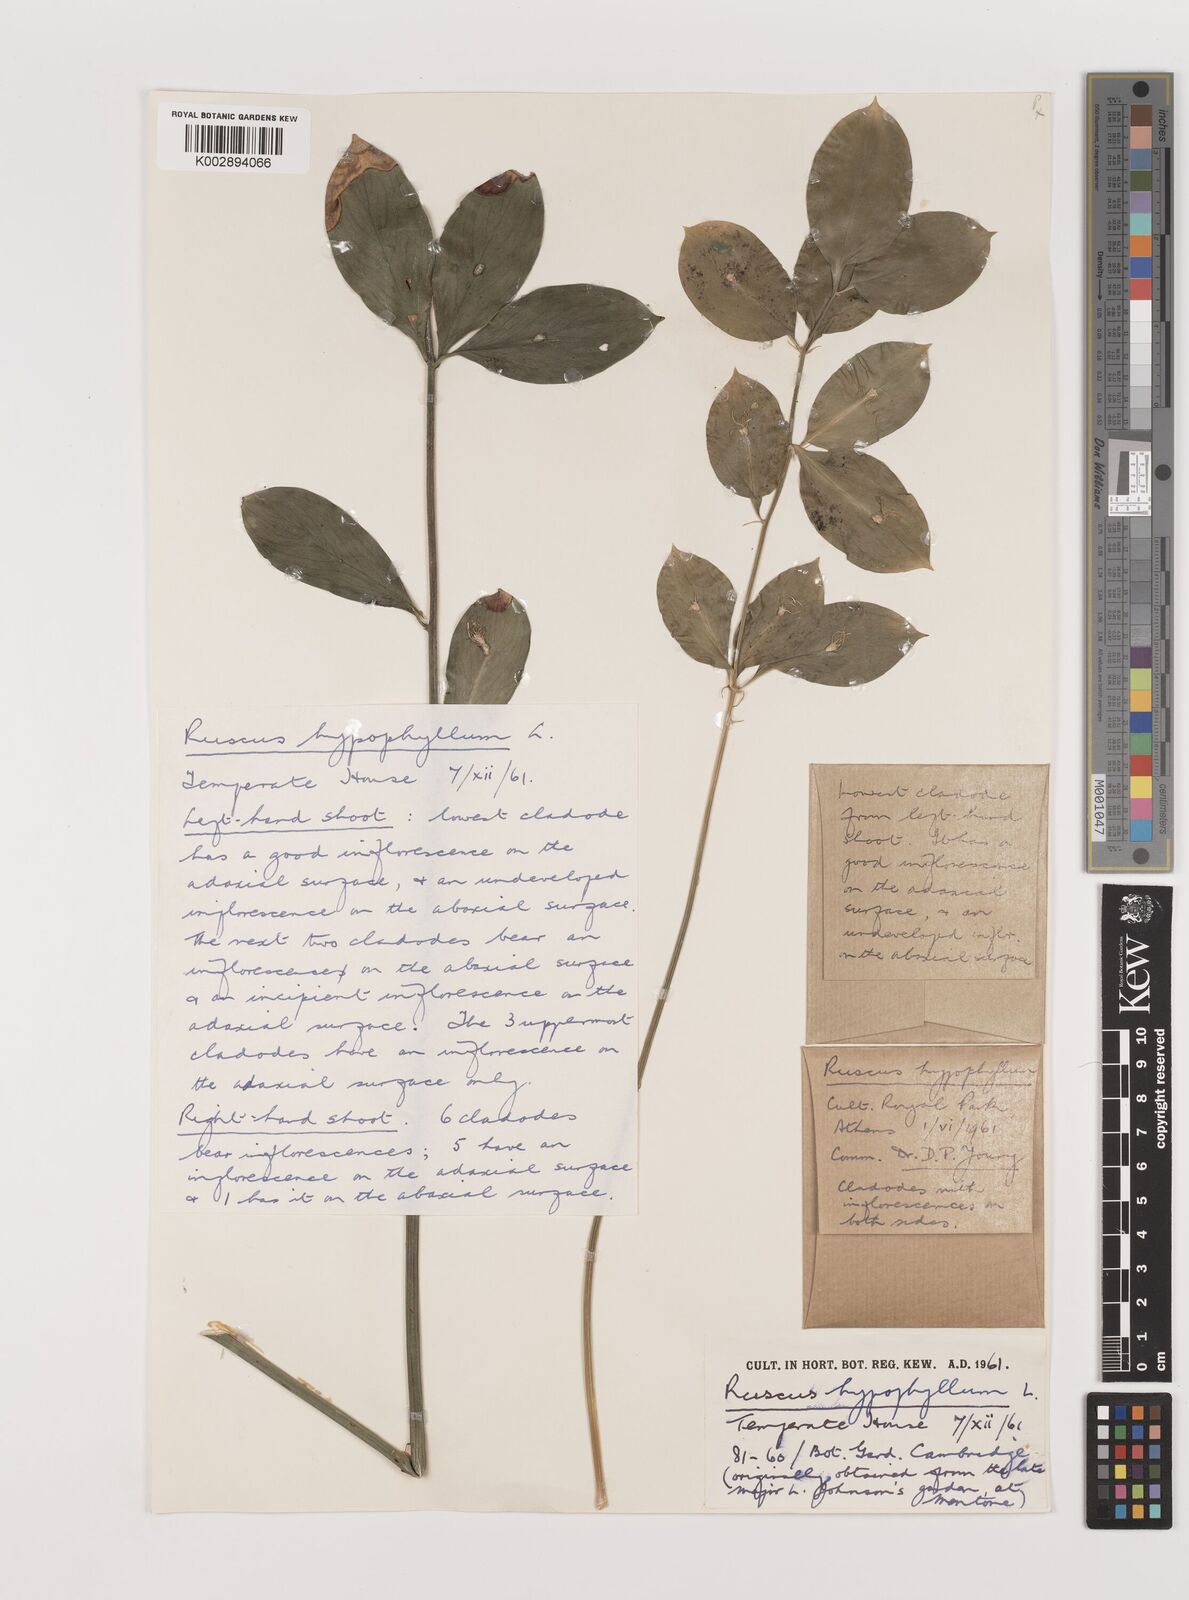 ROYAL BOTANIC GARDENS KEW
K002894066
Ruscus hypophyllum L.
Temperate House 7/xii/61.
Left-hand shoot: lowest cladode
has a good inflorescence on the
adaxial surface, & an undeveloped
inflorescence on the abaxial surface.
The next two cladodes bear an
inflorescence on the abaxial surface
& an incipient inflorescence on the
adaxial surface. The 3 uppermost
cladodes have an inflorescence on
the adaxial surface only.
Right-hand shoot. 6 cladodes
bear inflorescences; 5 have an
inflorescence on the adaxial surface
& 1 has it on the abaxial surface.
Lowest cladode
from left-hand
shoot. It has a
good inflorescence
on the adaxial
surface, & an
undeveloped inflor.
on the abaxial surface
Ruscus hypophyllum
Cult. Royal Park
Athens 1/vi/1961
Comm. Dr. D.P. Young
Cladodes with
inflorescences on
both sides.
CULT. IN HORT. BOT. REG. KEW. A.D. 1961.
Ruscus hypophyllum L.
Temperate House 7/xii/61
81-60/Bot. Gard. Cambridge
(originally obtained from the late
Major L. Johnson's garden, at
Mentone)
inches
Density
Don Williams
M001047
centimeters
Royal Botanic Gardens
Kew
0 1 2 3 4 5 6 7 8 9 10
cm
copyright reserved